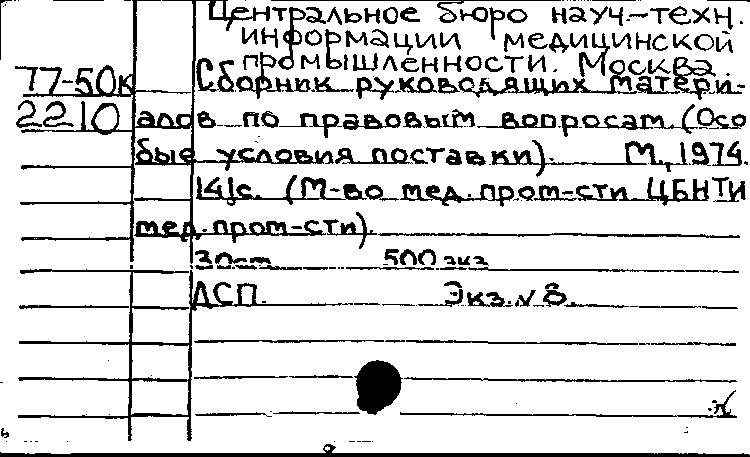 Центральное бюро науч.-техн.
информации медицинской
промышленности. Москва.
77-50к Сборник руководящих матери-
2210 алов по правовым вопросам. (Осо
бые условия поставки). М., 1974.
141с. (М-во мед. пром-сти ЦБНТИ
мед. пром-сти).
30см 500 экз
ДСП. Экз. № 8.